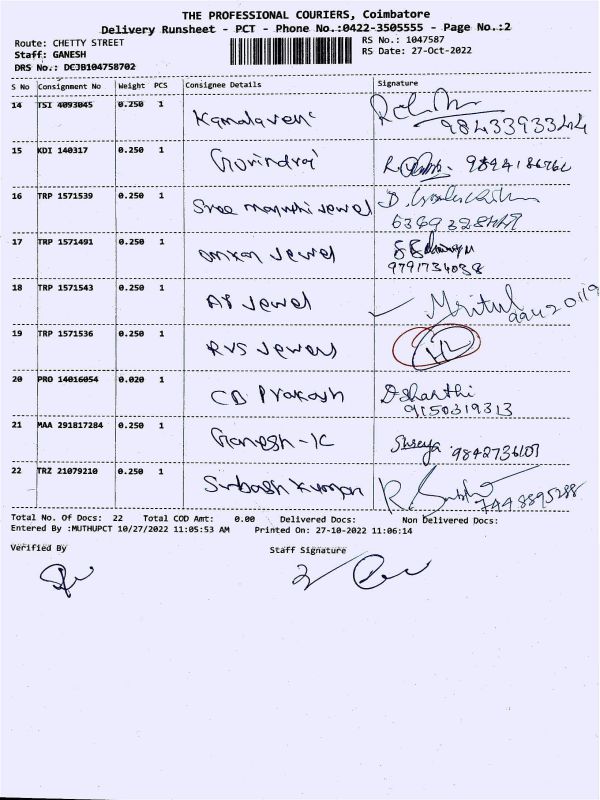 THE PROFESSIONAL COURIERS, Coimbatore
Delivery Runsheet - PCT - Phone No.:0422-3505555 - Page No.:2
Route: CHETTY STREET
RS No.: 1047587
Staff: GANESH
RS Date: 27-Oct-2022
DRS No.: DCJB104758702
S No Consignment No Weight PCS Consignee Details Signature
14 TSI 4093045 0.250 1 Kamalaveni
15 KDI 140317 0.250 1 Govindraj
16 TRP 1571539 0.250 1 Sree maruthi Jewel
17 TRP 1571491 0.250 1 Jewel
9791734038
18 TRP 1571543 0.250 1 Jewel Mritul
19 TRP 1571536 0.250 1 RVS Jewels HL
20 PRO 14016054 0.020 1 CB Prakash Dsharthi
9150319313
21 MAA 291817284 0.250 1 Ganesh - K Shreya 9842736107
22 TRZ 21079210 0.250 1 Subash kumar
7448895288
Total No. Of Docs: 22 Total COD Amt: 0.00 Delivered Docs: Non Delivered Docs:
Entered By :MUTHUPCT 10/27/2022 11:05:53 AM Printed On: 27-10-2022 11:06:14
Verified By Staff Signature